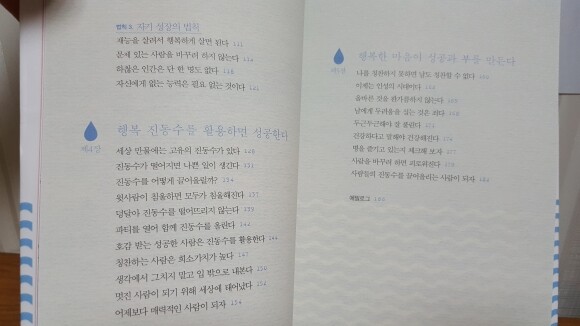 법칙 5 자기 성장의 법칙
재능을 살려서 행복하게 살면 된다
문제 있는 사람을 바꾸려 하지 않는다 114
하찮은 인간은 단 한 명도 없다 118
자신에게 없는 능력은 필요 없는 것이다
제4장
행복 진동수를 활용하면 성공한다
세상 만물에는 고유의 진동수가 있다
진동수가 떨어지면 나쁜 일이 생긴다
진동수를 어떻게 끌어올릴까?
윗사람이 침울하면 모두가 침울해진다
덩달아 진동수를 떨어뜨리지 않는다
파티를 열어 함께 진동수를 올린다
호감 받는 성공한 사람은 진동수를 활용한다
칭찬하는 사람은 희소가치가 높다 147
생각에서 그치지 말고 입 밖으로 내본다
멋진 사람이 되기 위해 세상에 태어났다
어제보다 매력적인 사람이 되자 154
제5장
행복한 마음이 성공과 부를 만든다
나를 칭찬하지 못하면 남도 칭찬할 수 없다
이제는 인성의 시대이다
올바른 것을 판가름하지 않는다
남에게 두려움을 갖는 것은 죄다
두근두근해야 잘 풀린다
건강하다고 말해야 건강해진다
병을 즐기고 있는지 체크해 보자
사람을 바꾸려 하면 괴로워진다
사람들의 진동수를 끌어올리는 사람이 되자
에필로그